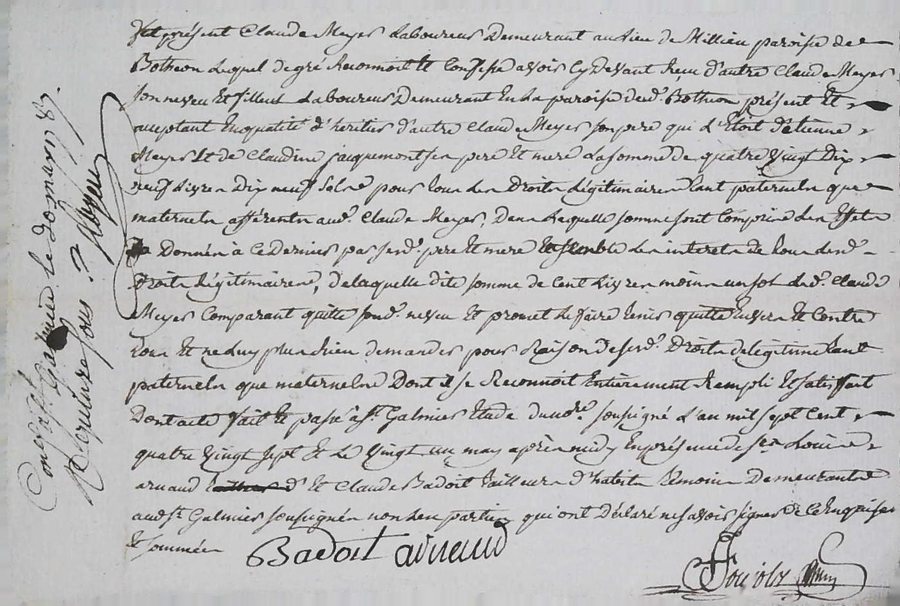 fut présent Claude Meyer Laboureur Demeurant au lieu de Millieu paroisse de
Botheon Lequel de gré Reconnoit Et Confesse avoir Cy Devant Reçu d'autre Claude Meyer
son neveu Et filleul Laboureur Demeurant En La paroisse de vd. Botheon présent Et
acceptant En qualité d'heritier d'autre Claude Meyer son pere qui L'Etoit d'Etienne
Meyer Et de Claudine jacquemont ses pere Et mere La somme de quatre Vingt Dix
neuf Livres Dix neuf Sols pour tous ses Droits Légitimaires tant paternels que
maternels afférents aud. Claude Meyer, Dans Laquelle somme sont Comprins Les Effets
Donnés à Ce Dernier par sesd. pere Et mere Ensemble Les interets de tous Lesd.
Droits Légitimaires, De laquelle dite somme de Cent Livres moins un sol Led. Claude
Meyer Comparant quitte sond. neveu Et promet Le faire tenir quitte Envers Et Contre
tous Et ne Luy plus Rien demander pour Raison De sesd. Droits de Légitime tant
paternels que maternels Dont il se Reconnoit Entièrement Rempli Et satisfait
Dont acte fait Et passé à St. Galmier Etude du nore. soussigné L'an mil sept Cent
quatre Vingt sept Et Le Vingt un may après midy En présence de sr. Louis
arnaud Et Claude Badoit tailleur d'habits temoins Demeurants
aud. St. Galmier soussignés non Les parties qui ont Déclaré ne savoir signer De Ce Enquises
Et sommées
Badoit arnaud
Conté à St. Galmier le 30 may 1787.
Reçu quinze sols